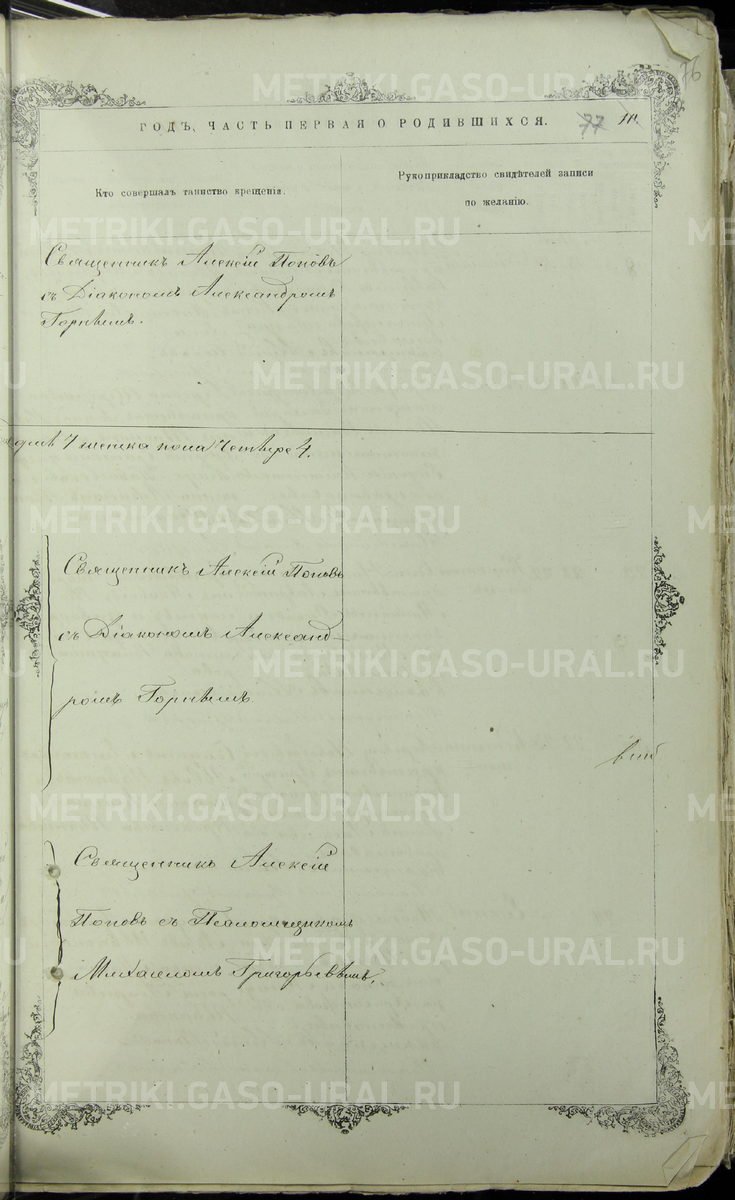 76
ГОДЪ, ЧАСТЬ ПЕРВАЯ О РОДИВШИХСЯ.
77
Кто совершалъ таинство крещенія.
Рукоприкладство свидѣтелей записи
по желанію.
Священникъ Алексій Поповъ
съ Діакономъ Александромъ
Горнымъ.
7 женска пола четыре 4.
Священникъ Алексій Поповъ
съ Діакономъ Александ-
ромъ Горнымъ
Священникъ Алексій
Поповъ съ Псаломщикомъ
Михаиломъ Григорьевымъ.
METRIKI.GASO-URAL.RU